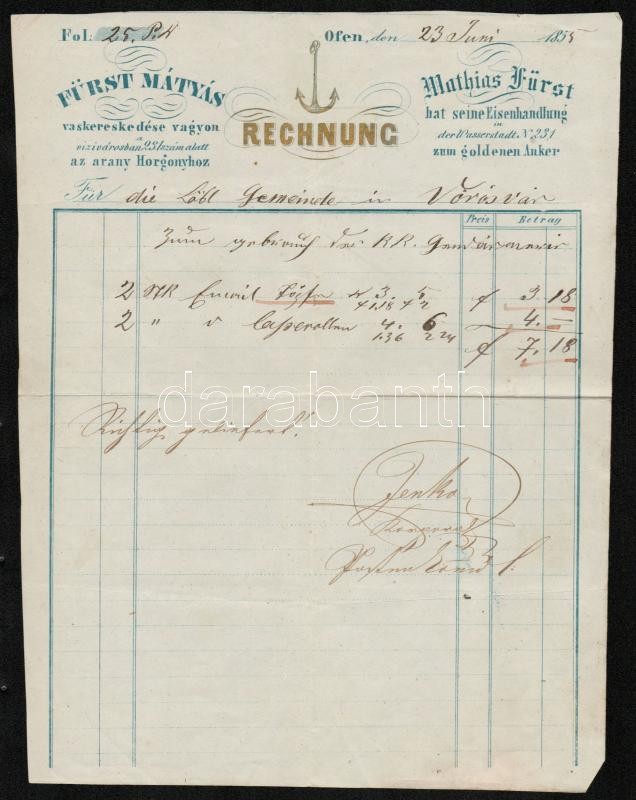 Fol. 25. P. N
Ofen, den 23 Juni 1855
FÜRST MÁTYÁS
vaskereskedése vagyon
a
vizivárosban 231 szám alatt
az arany Horgonyhoz
RECHNUNG
Mathias Fürst
hat seine Eisenhandlung
in
der Wasserstadt No 231
zum goldenen Anker
Für die Löbl Gemeinde in Vörösvár
Preis Betrag
Zum gebrauch der KK. Gendarmerie
2 Stk Email Töpfe No 3. 5 f 3. 18
1.18 2
2 " Casserollen 4. 6 4. —
1.36 2 24
f 7. 18
darabanth
Richtig geliefert.
Jenko
Korporal
Posten Comd